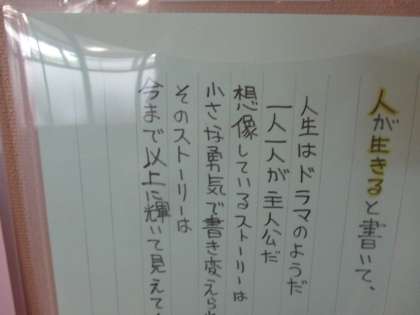 人が生きると書いて、
人生はドラマのようだ
一人一人が主人公だ
想像しているストーリーは
小さな勇気で書き変えられ
そのストーリーは
今まで以上に輝いて見えて